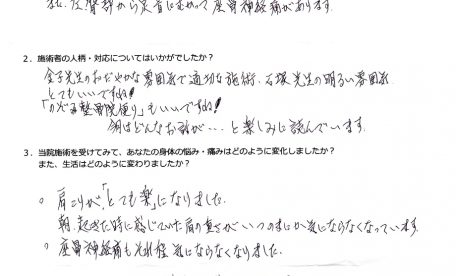 左臀部から足首にかけて座骨神経痛があります。
2．施術者の人柄・対応についてはいかがでしたか？
金子先生のおだやかな雰囲気で適切な施術、石塚先生の明るい雰囲気
とてもいいですね！
「かぞろ整骨院便り」もいいですね！
今月はどんなお話が…と楽しみに読んでいます。
3．当院施術を受けてみて、あなたの身体の悩み・痛みはどのように変化しましたか？
また、生活はどのように変わりましたか？
○ 肩こりが、「とても楽」になりました。
朝、起きた時に感じていた肩の重さがいつのまにか気にならなくなっています。
○ 座骨神経痛もそれ程気にならなくなりました。